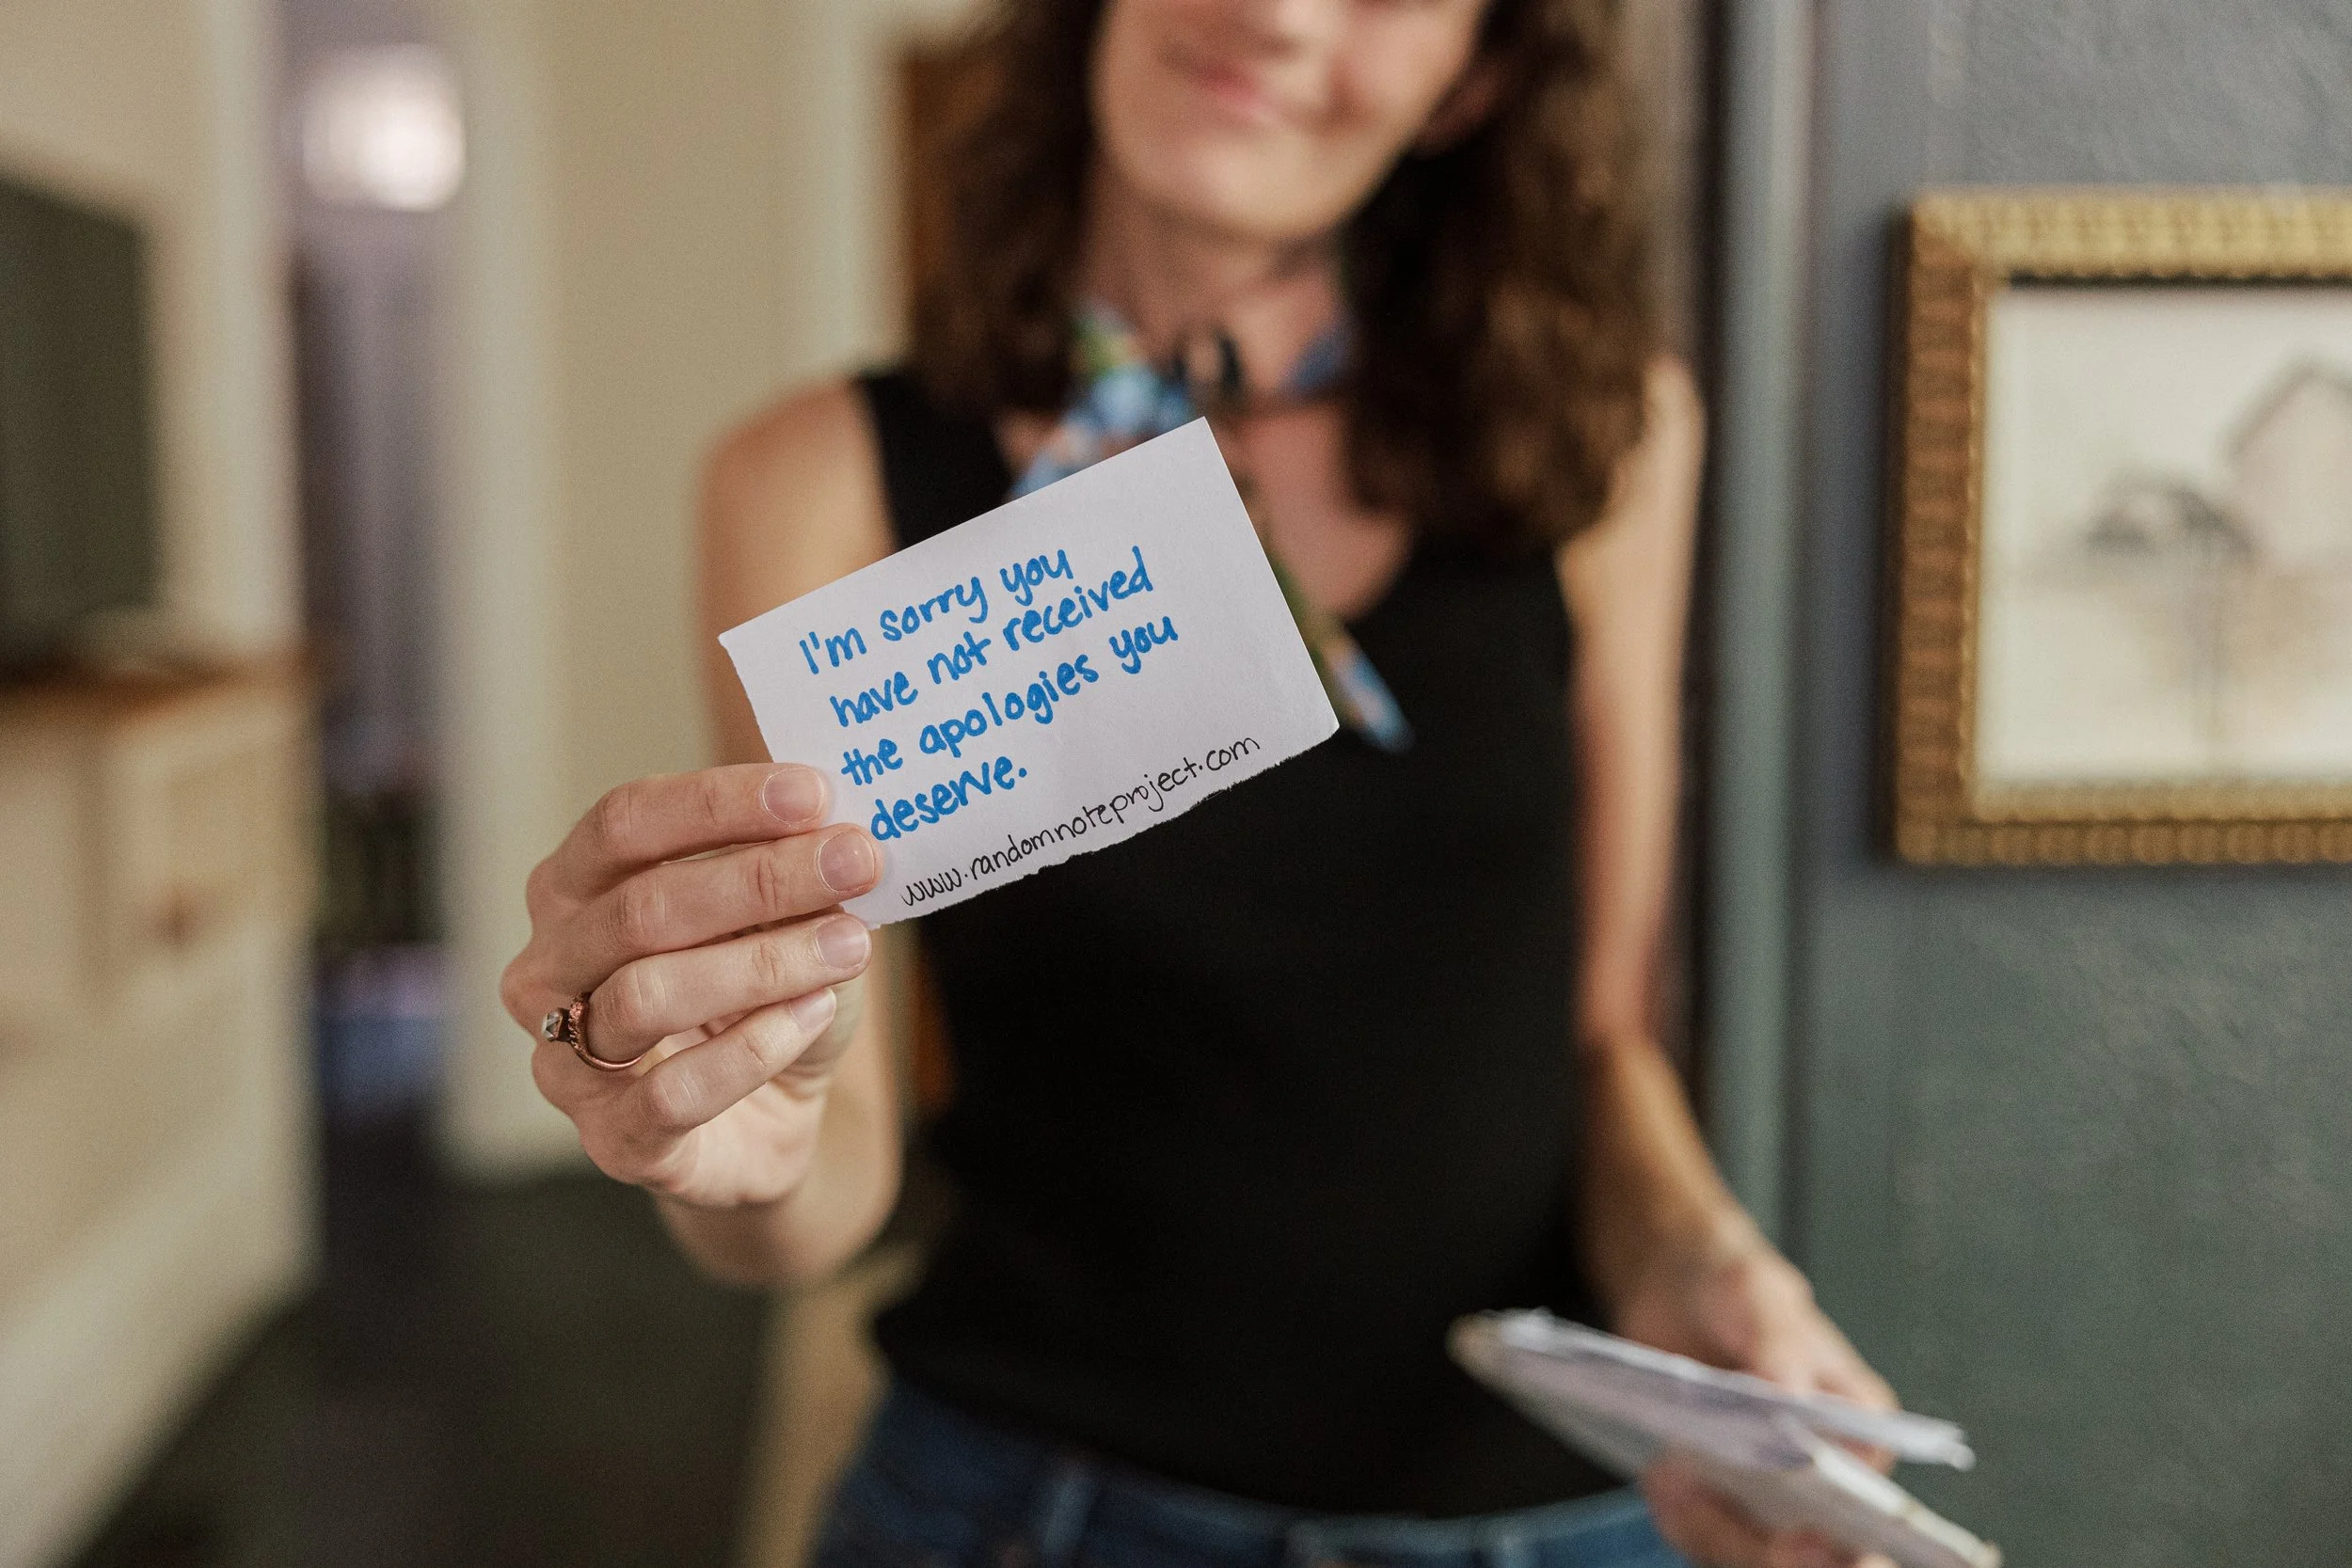 I'm sorry you
have not received
the apologies you
deserve.
www.randomnoteproject.com